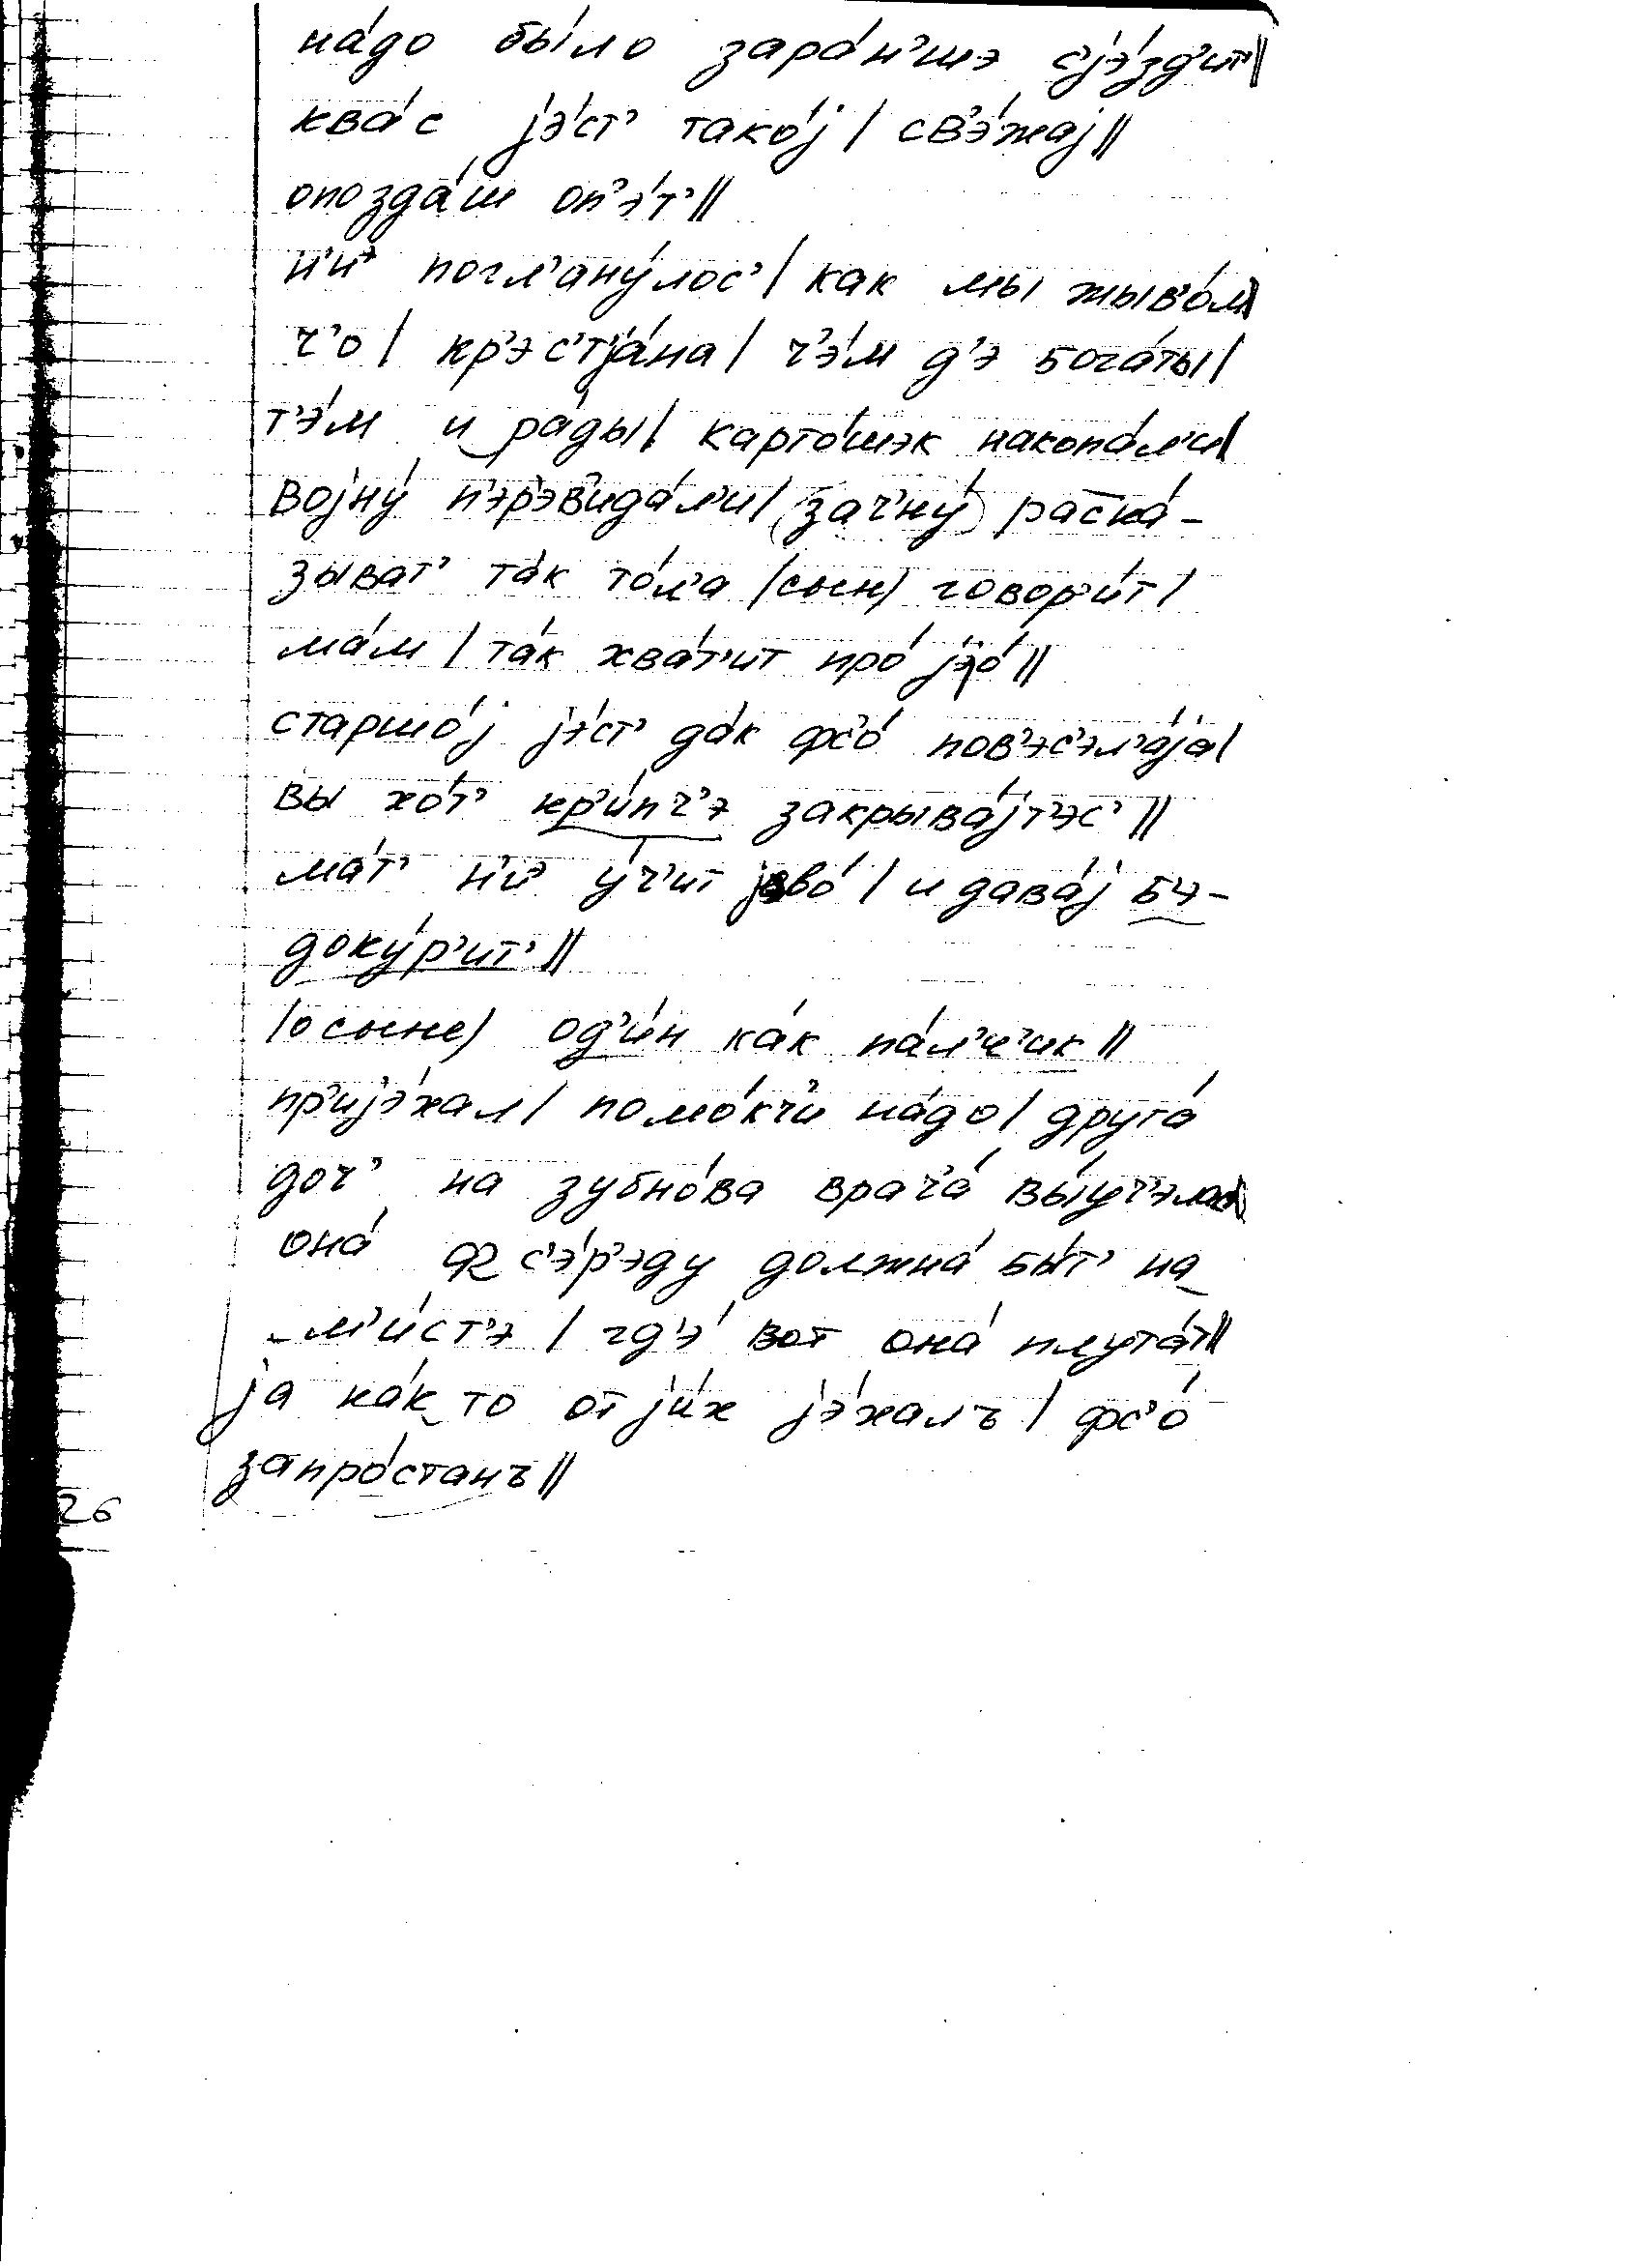 на́до бы́ло зара́н'шэ с'jэ́зд'ит'||
ква́с jэ́ст' тако́j | св'э́жаj||
опозда́ш оп'э́т'||
н'и погл'ану́лос' | как мы жыв'о́м|
ч'о | кр'эс'т'jа́на | ч'э́м д'э бога́ты |
т'э́м и ра́ды| карто́шэк накопа́л'и|
воjну́ п'эр'эв'ида́л'и | (зач'ну́) раска́-
зыват' та́к то́л'а (сын) говор'и́т |
ма́м | та́к хва́т'ит про́ jэо́ ||
старшо́j jэ́ст' да́к фс'о́ пов'эс'эл'а́jа|
вы хо́т' кр'и́пч'э закрыва́jт'эс' ||
ма́т' н'и у́ч'ит jово́ | и дава́j бъ-
доку́р'ит' ||
(о сыне) од'и́н ка́к па́л'ч'ик ||
пр'иjэ́хал | помо́кч'и на́до | друга́
доч' на зубно́ва врач'а́ вы́уч'элас'
она́ ф с'э́р'эду должна́ бы́т' на
м'и́ст'э | гд'э́ вот она́ плута́т||
jа ка́к то от jи́х jэ́халъ | фс'о́
запро́станъ ||
26